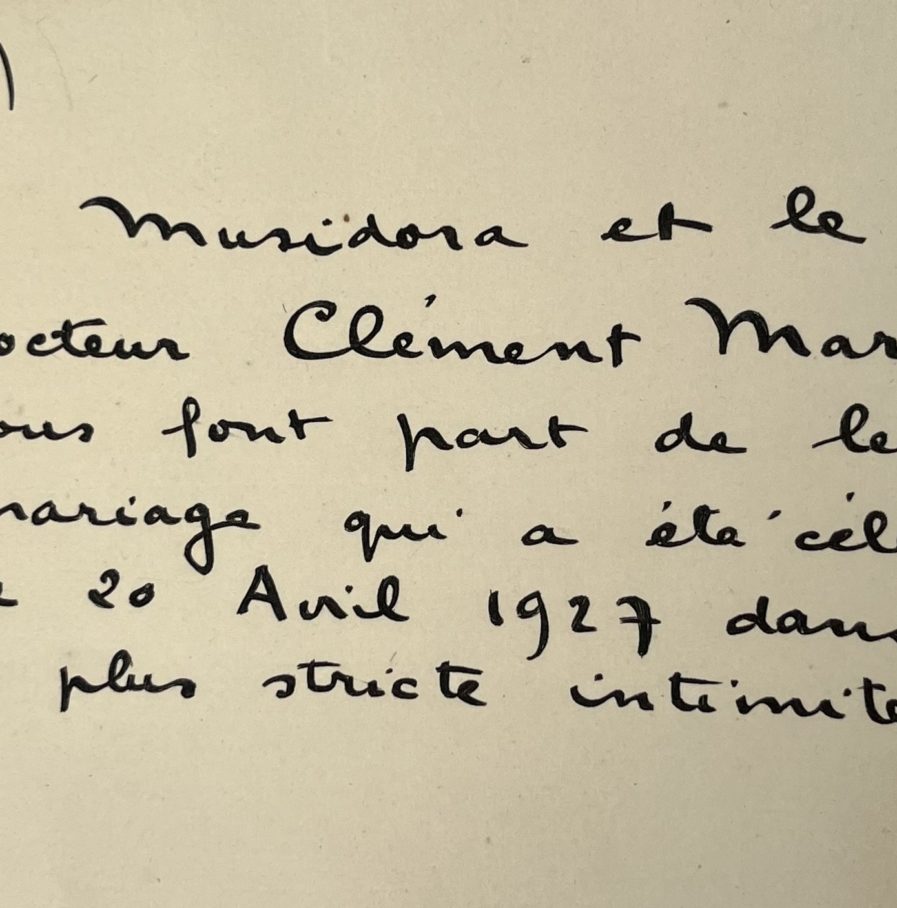 Musidora et le
octeur Clément Mar
ous font part de le
mariage qui a été cél
20 Avril 1927 dans
plus stricte intimité